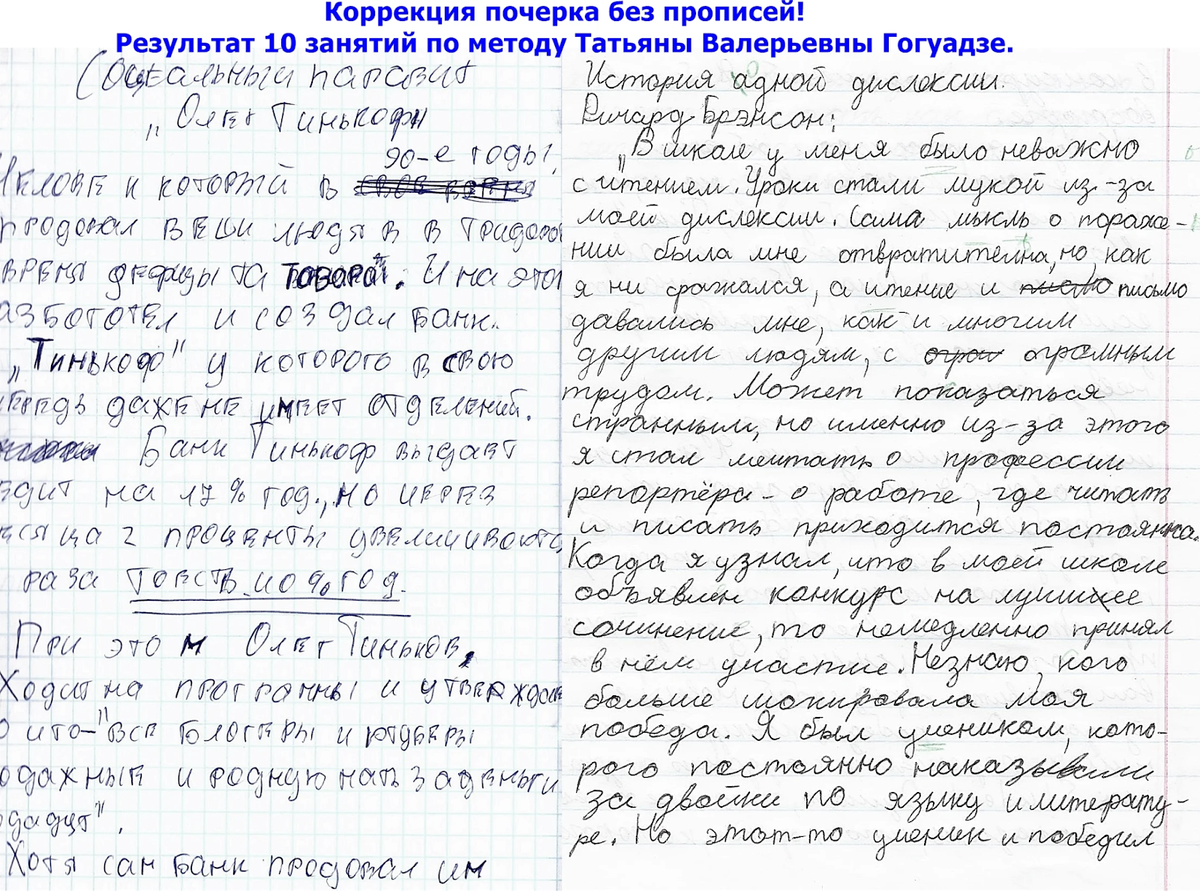 Коррекция почерка без прописей!
Результат 10 занятий по методу Татьяны Валерьевны Гогуадзе.
Социальный паразит
„Олег Тинькофн
90-е годы,
Человек который в
продовал вещи людя в в тридорог
время дефицыта товара". И на этом
азбоготел и создал банк.
„Тинькоф" у которого в свою
чередь даже не имеет отделений.
Банк Тинькоф выдаёт
едит на 17% год., но через
есяца 2 проценты увеличиваютс
раза тоесть 40% год.
При этом Олег Тиньков,
Ходит на програмны и утверждае
о что-"все блогеры и ютуберы
одажные и родную мать за деньги
дадут".
Хотя сам банк продовал им
История одной дислексии.
Ричард Брэнсон:
„В школе у меня было неважно
с чтением. Уроки стали мукой из-за
моей дислексии. Сама мысль о пораже-
нии была мне отвратительна, но, как
я ни сражался, а чтение и письмо
давались мне, как и многим
другим людям, с огромным
трудом. Может показаться
странным, но именно из-за этого
я стал мечтать о профессии
репортёра - о работе, где читать
и писать приходится постоянно.
Когда я узнал, что в моей школе
объявлен конкурс на лучшее
сочинение, то немедленно принял
в нём участие. Незнаю, кого
больше шокировала моя
победа. Я был учеником, кото-
рого постоянно наказывали
за двойки по языку и литерату-
ре. Но этот-то ученик и победил